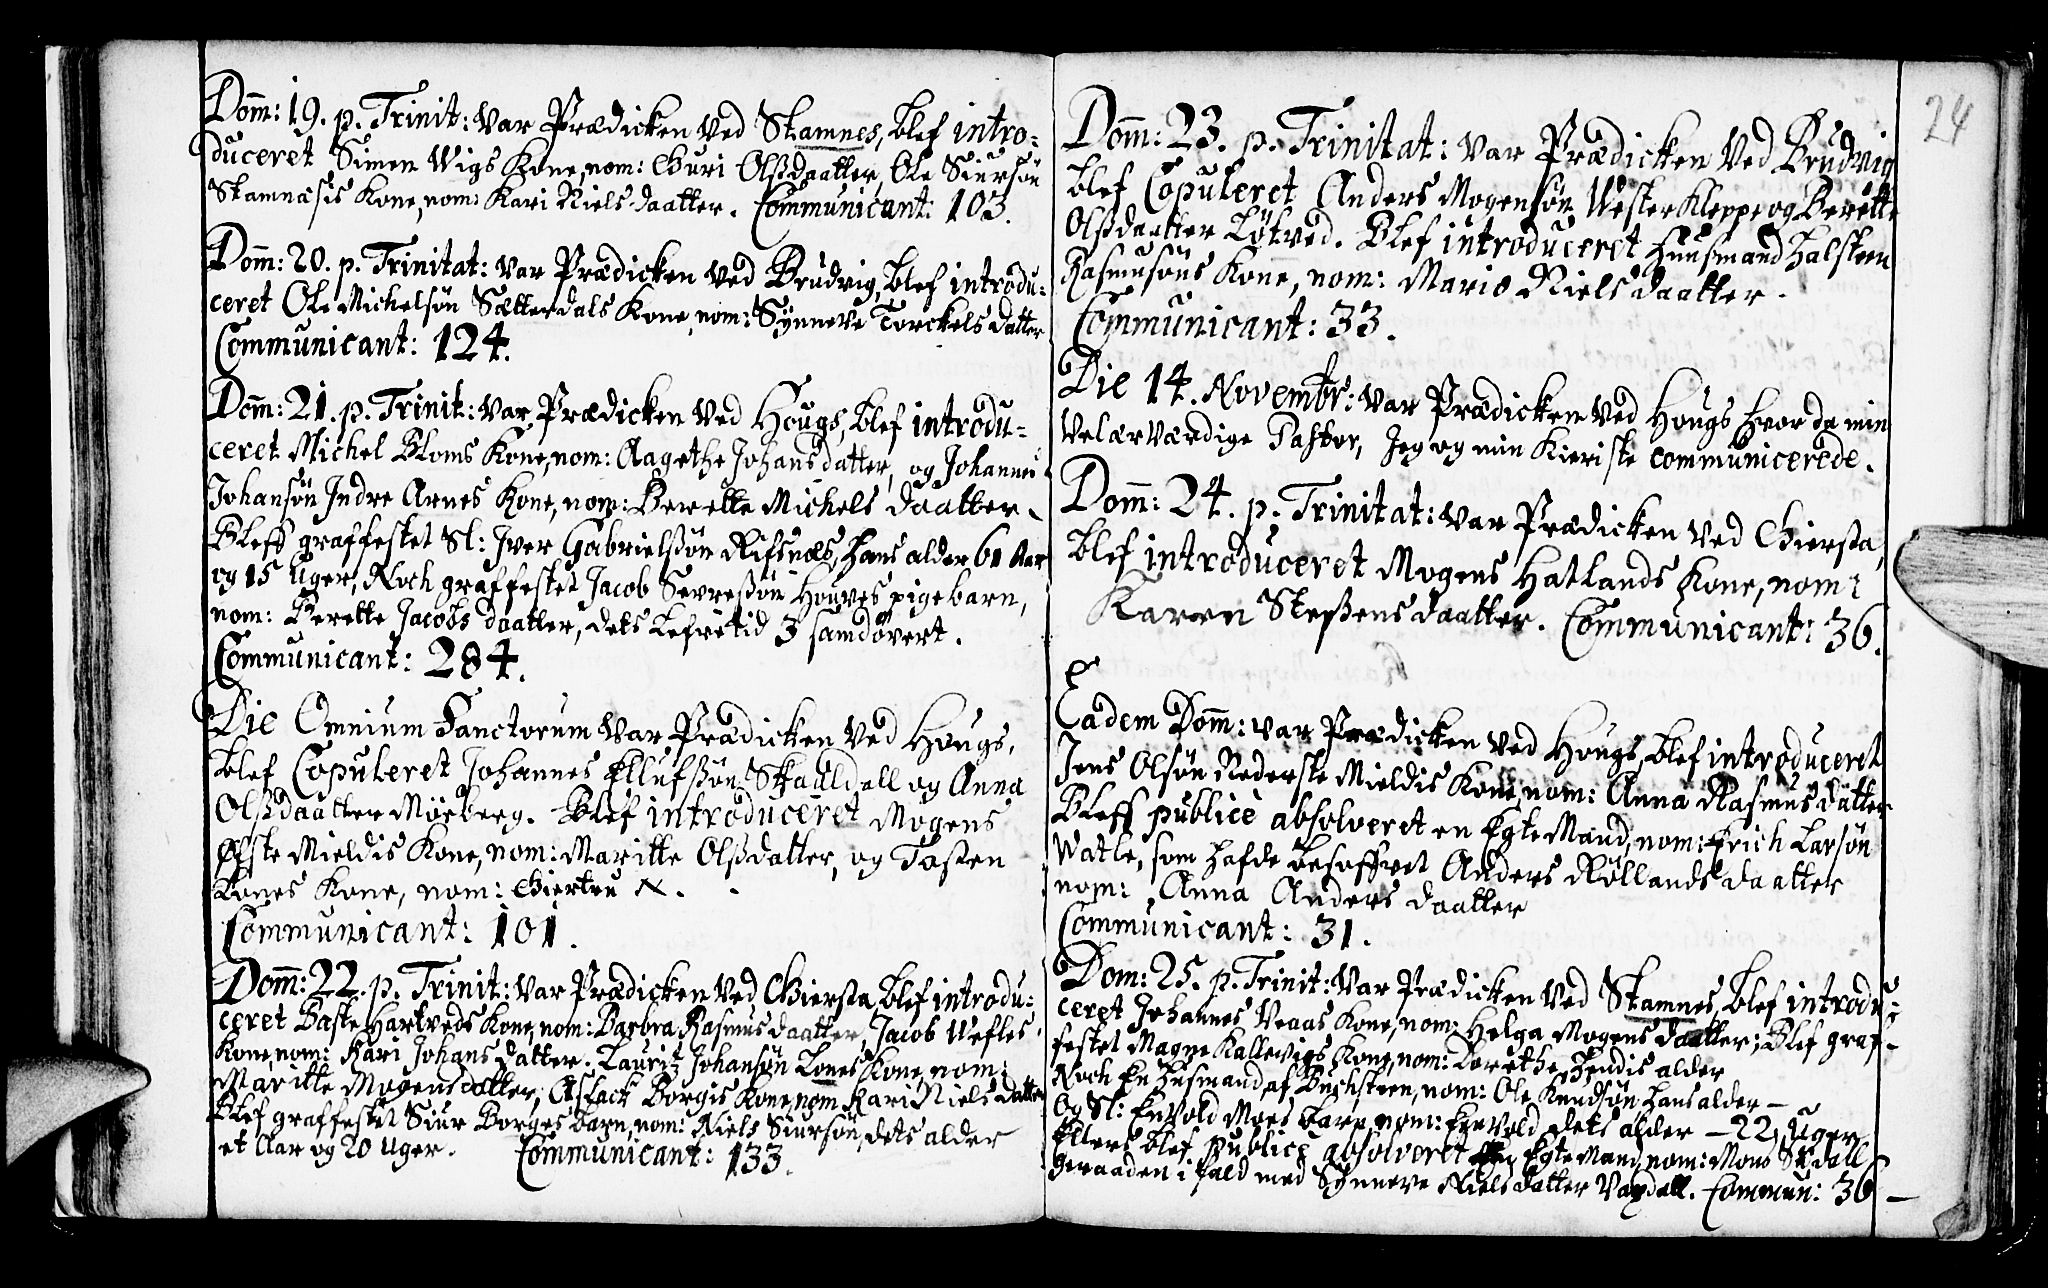 Dom̄: 19. p. Trinit: var Prædicken ved Stamnes, blef intro-
duceret Simen Wigs Kone, nom: Guri Olsdaatter, Ole Siursøn
Stamnæsis Kone, nom: Kari Niels daatter. Communicant: 103.
Dom̄: 20. p. Trinitat: var Prædicken ved Brudvig, blef introdu-
ceret Ole Michelsøn Sætterdals Kone, nom: Synneve Torckels datter
Communicant: 124.
Dom̄: 21. p. Trinit: var Prædicken ved Hougs, blef introdu-
ceret Michel Bloms Kone, nom: Aagethe Johans datter, og Johannes
Johansøn Indre Arnes Kone, nom: Berette Michels daatter.
Bleff graffestet Sl: Iver Gabrielssøn Rifsnæs, hans alder 61 Aar
og 15 Uger, Noch graffestet Jacob Sevressøn Houves pigebarn,
nom: Berette Jacobs daatter, dets lefvetid 3 samdøvert.
Communicant: 284.
Die Omnium Sanctorum var Prædicken ved Hougs,
blef Copuleret Johannes Ellufssøn Skaaldall og Anna
Olsdaatter Mørberg. Blef introduceret Mogens
Øfste Mieldis Kone, nom: Maritte Olsdatter, og Tosten
Lones Kone, nom: Giertru N.
Communicant: 101.
Dom̄: 22. p. Trinit: var Prædicken ved Giersta, blef introdu-
ceret Baste Hartveds Kone, nom: Barbra Rasmus daatter, Jacob Wefles
Kone, nom: Kari Johans datter. Lauritz Johansøn Lones Kone, nom:
Maritte Mogens datter; Aslack Borgis Kone, nom Kari Niels datter
Blef graffestet Siur Borges barn, nom: Niels Siursøn, dets alder
et Aar og 20 Uger. Communicant: 133.
24
Dom̄: 23. p. Trinitat: var Prædicken ved Brudvig
blef Copuleret Anders Mogensøn Wester Kleppe og Berette
Olsdaatter Løtved. Blef introduceret Huusmand Halsteen
Rasmusøns Kone, nom: Marie Niels daatter.
Communicant: 33.
Die 14. Novembr: var Prædicken ved Hougs hvor da min
velærværdige Pastor, Jeg og min Kieriste communicerede.
Dom̄: 24. p. Trinitat: var Prædicken ved Giersta,
blef introduceret Mogens Hatlands Kone, nom:
Karen Steffens daatter. Communicant: 36.
Eadem Dom̄: var Prædicken ved Hougs, blef introduceret
Jens Olsøn Nederste Mieldis Kone, nom: Anna Rasmus datter
Bleff publicè absolveret en Egte Mand, nom: Erich Larsøn
Watle, som hafde besoffvet Anders Røllands daatter
nom: Anna Anders daatter
Communicant: 31.
Dom: 25. p. Trinit: var Prædicken ved Stamnes, blef introdu-
ceret Johannes Veaas Kone, nom: Helga Mogens daatter; Blef graf-
festet Magne Kallevigs Kone, nom: Dorethe, hendis alder
Noch En husmand af Buchsteen, nom: Ole Knudsøn hans alder —
og Sl: Envold Moes barn, nom: Envold dets alder — 22 Uger
Ellers blef publicè absolveret En Egte Mand, nom: Mons
geraaden i fald med Synneve Niels datter Vaxdall. Commun: 36 —